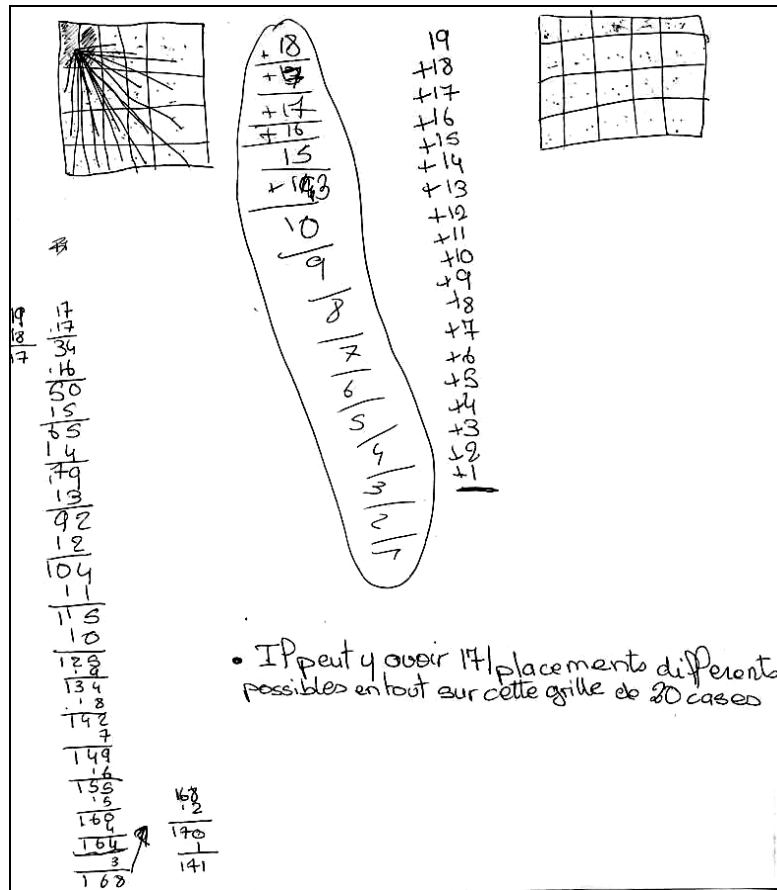 +18
+17
+16
15
10
9
8
7
6
5
4
3
2
1
19
+18
+17
+16
+15
+14
+13
+12
+11
+10
+9
+8
+7
+6
+5
+4
+3
+2
+1
19
18
17
17
17
34
16
50
15
65
14
79
13
92
12
104
11
115
10
125
9
134
8
142
7
149
6
155
5
160
4
164
3
168
168
2
170
1
171
• Il peut y avoir 171 placements differents
possibles en tout sur cette grille de 20 cases